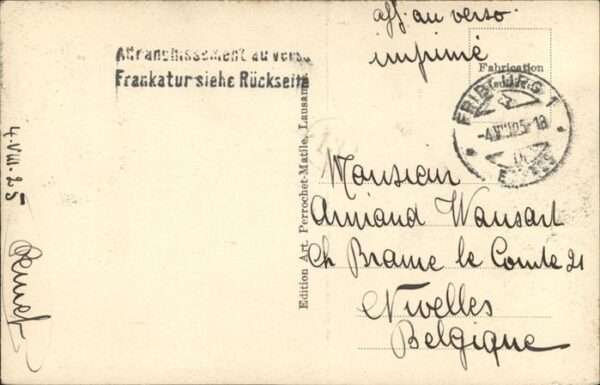 aff. au verso
imprimé
Affranchissement au verso
Frankatur siehe Rückseite
Fabrication
FRIBOURG 1
-4.VIII.25-18
4.VIII.25
Edition Art. Perrochet-Matile, Lausanne
Monsieur
Armand Wansart
Ch Braine le Comte 21
Nivelles
Belgique